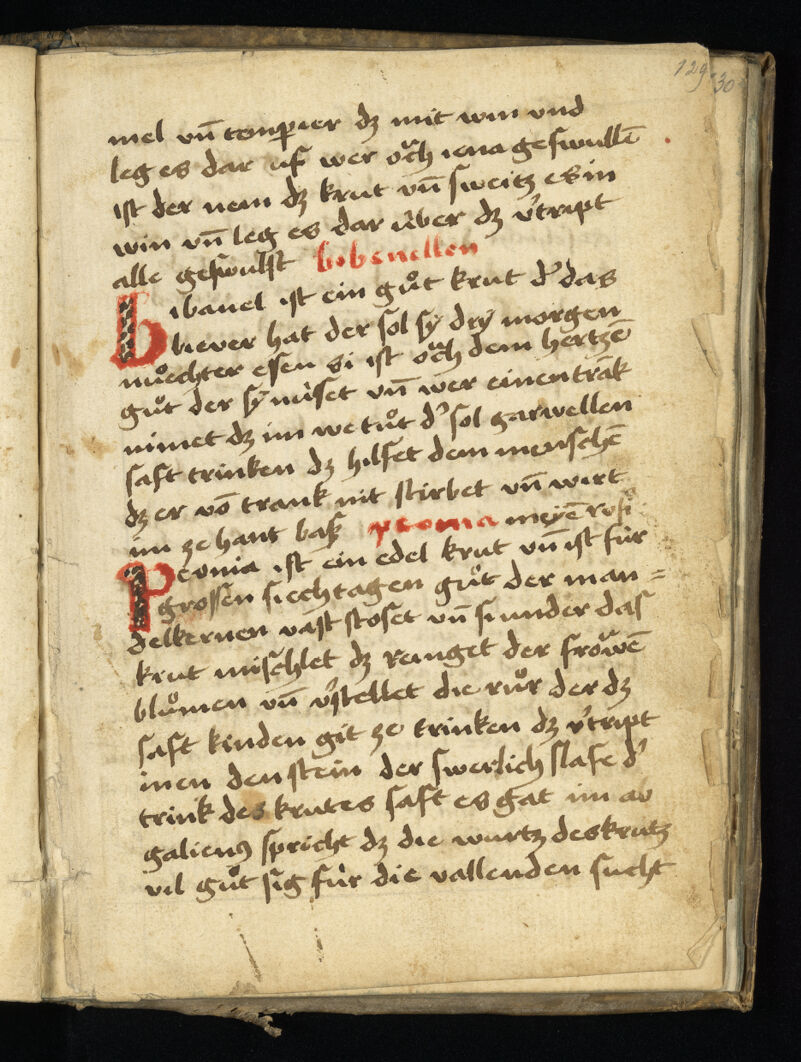 129 130
mel vn̄ temꝑier dꝫ mit win vnd
leg es dar uf wer oͧch iena geswullē
ist der nem dꝫ krut vn̄ sweitz es in
win vn̄ leg es dar über dꝫ v'tript
alle geswulst bibenellen
Bibanel ist ein guͦt krut d' das
biever hat der sol sÿ drÿ morgen
nuͤechter essen si ist oͧch dem hertzē
guͦt der sÿ nüset vn̄ wer einen trāk
nimet dꝫ im we tuͦt d' sol garwellen
saft trinken dꝫ hilfet dem menschē
dꝫ er vō trank nit stirbet vn̄ wirt
im ze hant baß peonia meyē rosē
Peonia ist ein edel krut vn̄ ist für
grossen siechtagen guͦt der man=
delkernen vast stoset vn̄ sunder das
krut müschlet dꝫ reinget der froͧwē
bluͦmen vn̄ v'stellet die ruͦr der dꝫ
saft kinden git ze trinken dꝫ v'tript
inen den stein der swerlich slafe d'
trink des krutes saft es gat im ab
galienꝰ spricht dꝫ die wurtz des krutz
vil guͦt sig für die vallenden sucht